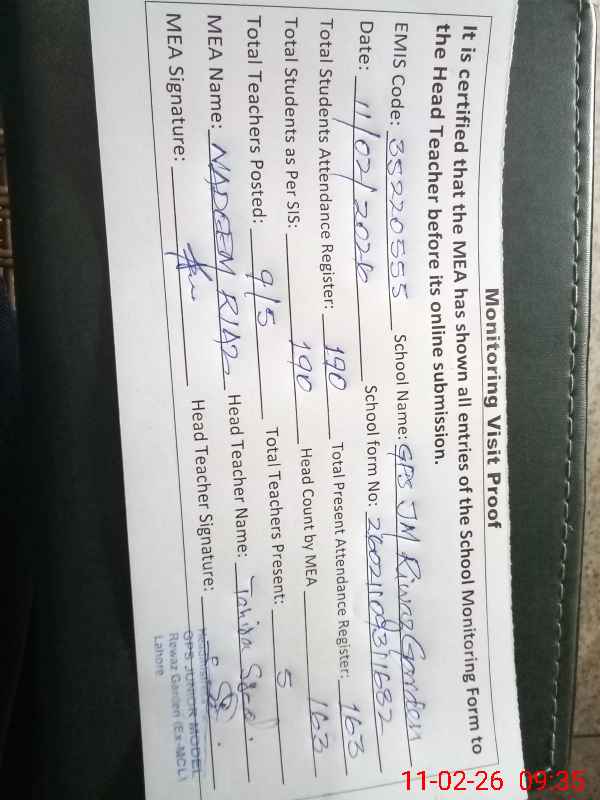 Monitoring Visit Proof
It is certified that the MEA has shown all entries of the School Monitoring Form to
the Head Teacher before its online submission.
EMIS Code: 35220555 School Name: GPS JM Riwaz Garden
Date: 11/02/2026 School form No: 26021109311682
Total Students Attendance Register: 190 Total Present Attendance Register: 163
Total Students as Per SIS: 190 Head Count by MEA 163
Total Teachers Posted: 9/5 Total Teachers Present: 5
MEA Name: NADEEM RIAZ Head Teacher Name: Tahira
MEA Signature: Head Teacher Signature:
GPS JUNIOR MODEL
Rewaz Garden (Ex-MCL)
Lahore
11-02-26 09:35